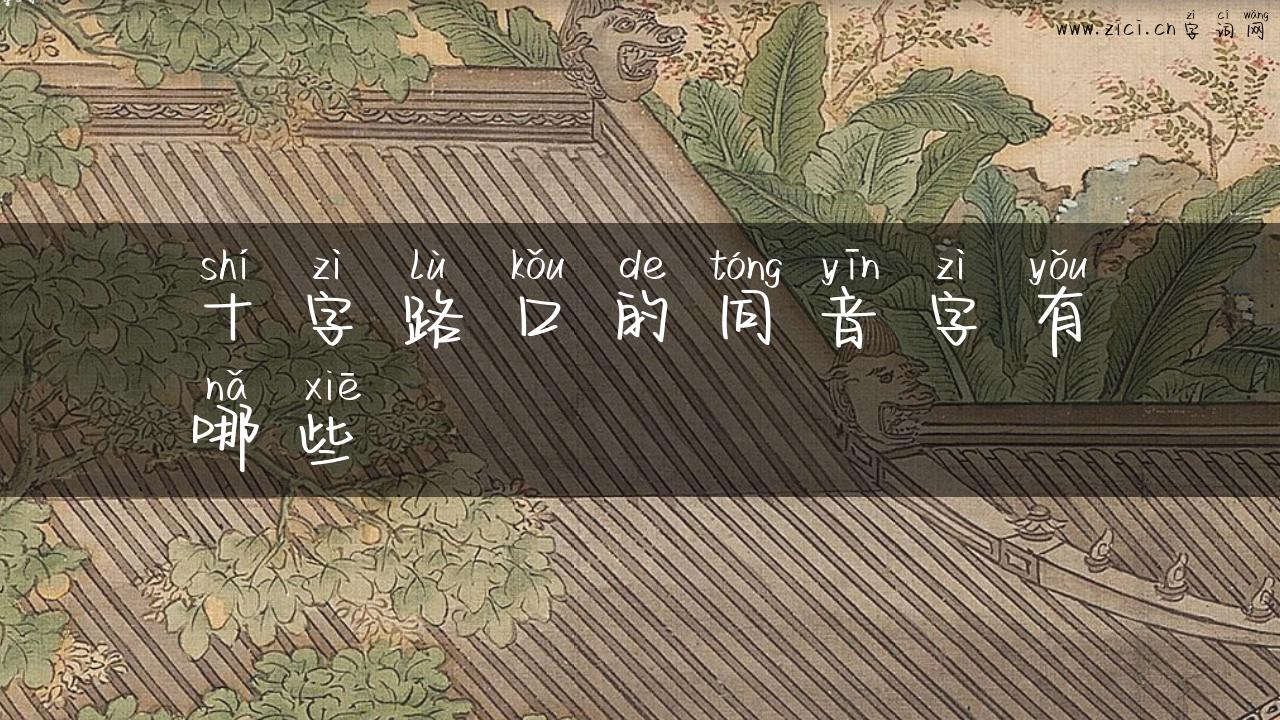 zì cí wǎng
www.zici.cn 字词网
shí zì lù kǒu de tóng yīn zì yǒu
十字路口的同音字有
nǎ xiē
哪些